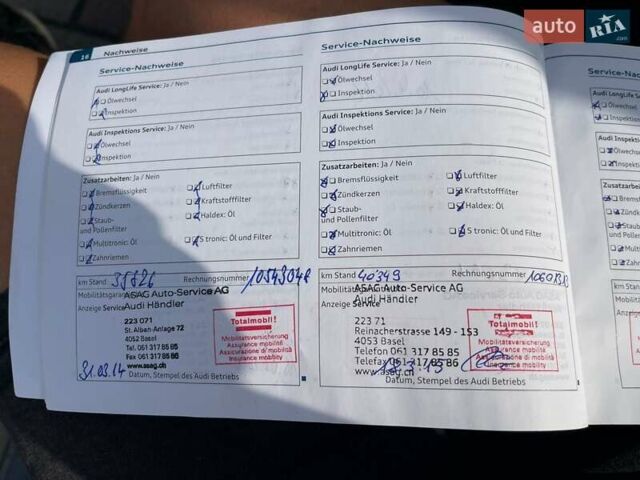 auto RIA.com
16 Nachweise
Service-Nachweise
Audi LongLife Service: Ja / Nein
Ölwechsel
Inspektion
Audi Inspektions Service: Ja / Nein
Ölwechsel
Inspektion
Zusatzarbeiten: Ja / Nein
Bremsflüssigkeit
Luftfilter
Zündkerzen
Kraftstofffilter
Staub-
und Pollenfilter
Haldex: Öl
Multitronic: Öl
S tronic: Öl und Filter
Zahnriemen
km Stand Rechnungsnummer
Mobilitätsgaran
ASAG Auto-Service AG
Audi Händler
Anzeige Service
223 071
St. Alban-Anlage 72
4052 Basel
Tel. 061 317 85 85
Fax 061 317 85 86
www.asag.ch
Totalmobil!
Mobilitätsversicherung
Assurance mobilité
Assicurazione di mobilità
Insurance mobility
31.03.14
Datum, Stempel des Audi Betriebs
Service-Nachweise
Audi LongLife Service: Ja / Nein
Ölwechsel
Inspektion
Audi Inspektions Service: Ja / Nein
Ölwechsel
Inspektion
Zusatzarbeiten: Ja / Nein
Bremsflüssigkeit
Luftfilter
Zündkerzen
Kraftstofffilter
Staub-
und Pollenfilter
Haldex: Öl
Multitronic: Öl
S tronic: Öl und Filter
Zahnriemen
km Stand 40349 Rechnungsnummer
ASAG Auto-Service AG
Audi Händler
Anzeige Service
223 71
Reinacherstrasse 149 - 153
4053 Basel
Telefon 061 317 85 85
Telefax 061 317 85 86
www.asag.ch
Totalmobil!
Mobilitätsversicherung
Assurance mobilité
Assicurazione di mobilità
Insurance mobility
Datum, Stempel des Audi Betriebs
Service-Nachw
Audi LongLife
Ölwechsel
Audi Inspekt
Ölwechsel
Inspektion
Zusatzarbeit